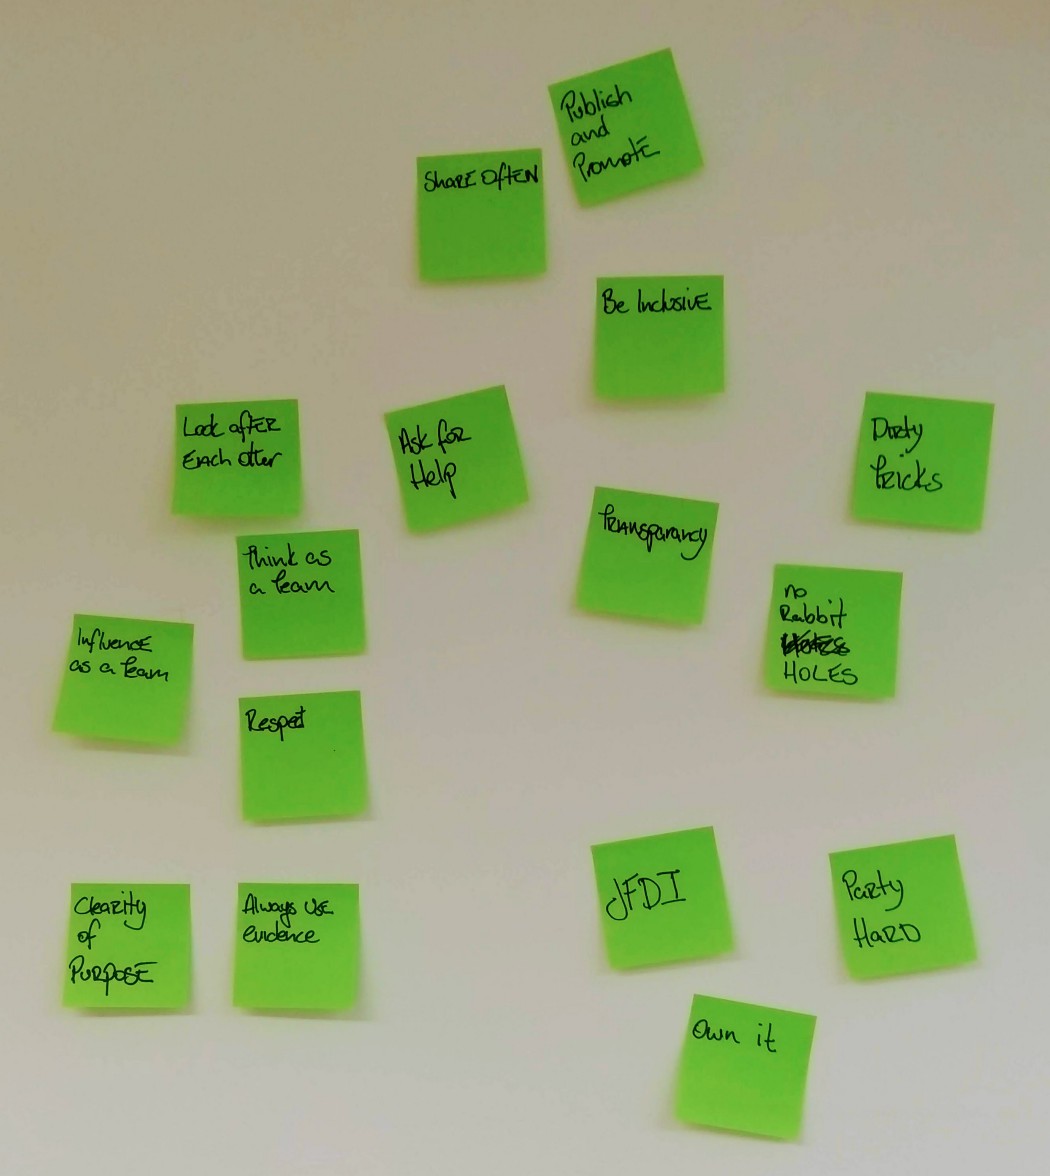 Publish
and
Promote
Share Often
Be Inclusive
Look after
Each other
Ask for
Help
Dirty
Tricks
Transparancy
Think as
a Team
no
Rabbit
HOLES
Influence
as a Team
Respect
JFDI
Party
HARD
Clearity
of
PURPOSE
Always Use
evidence
Own it